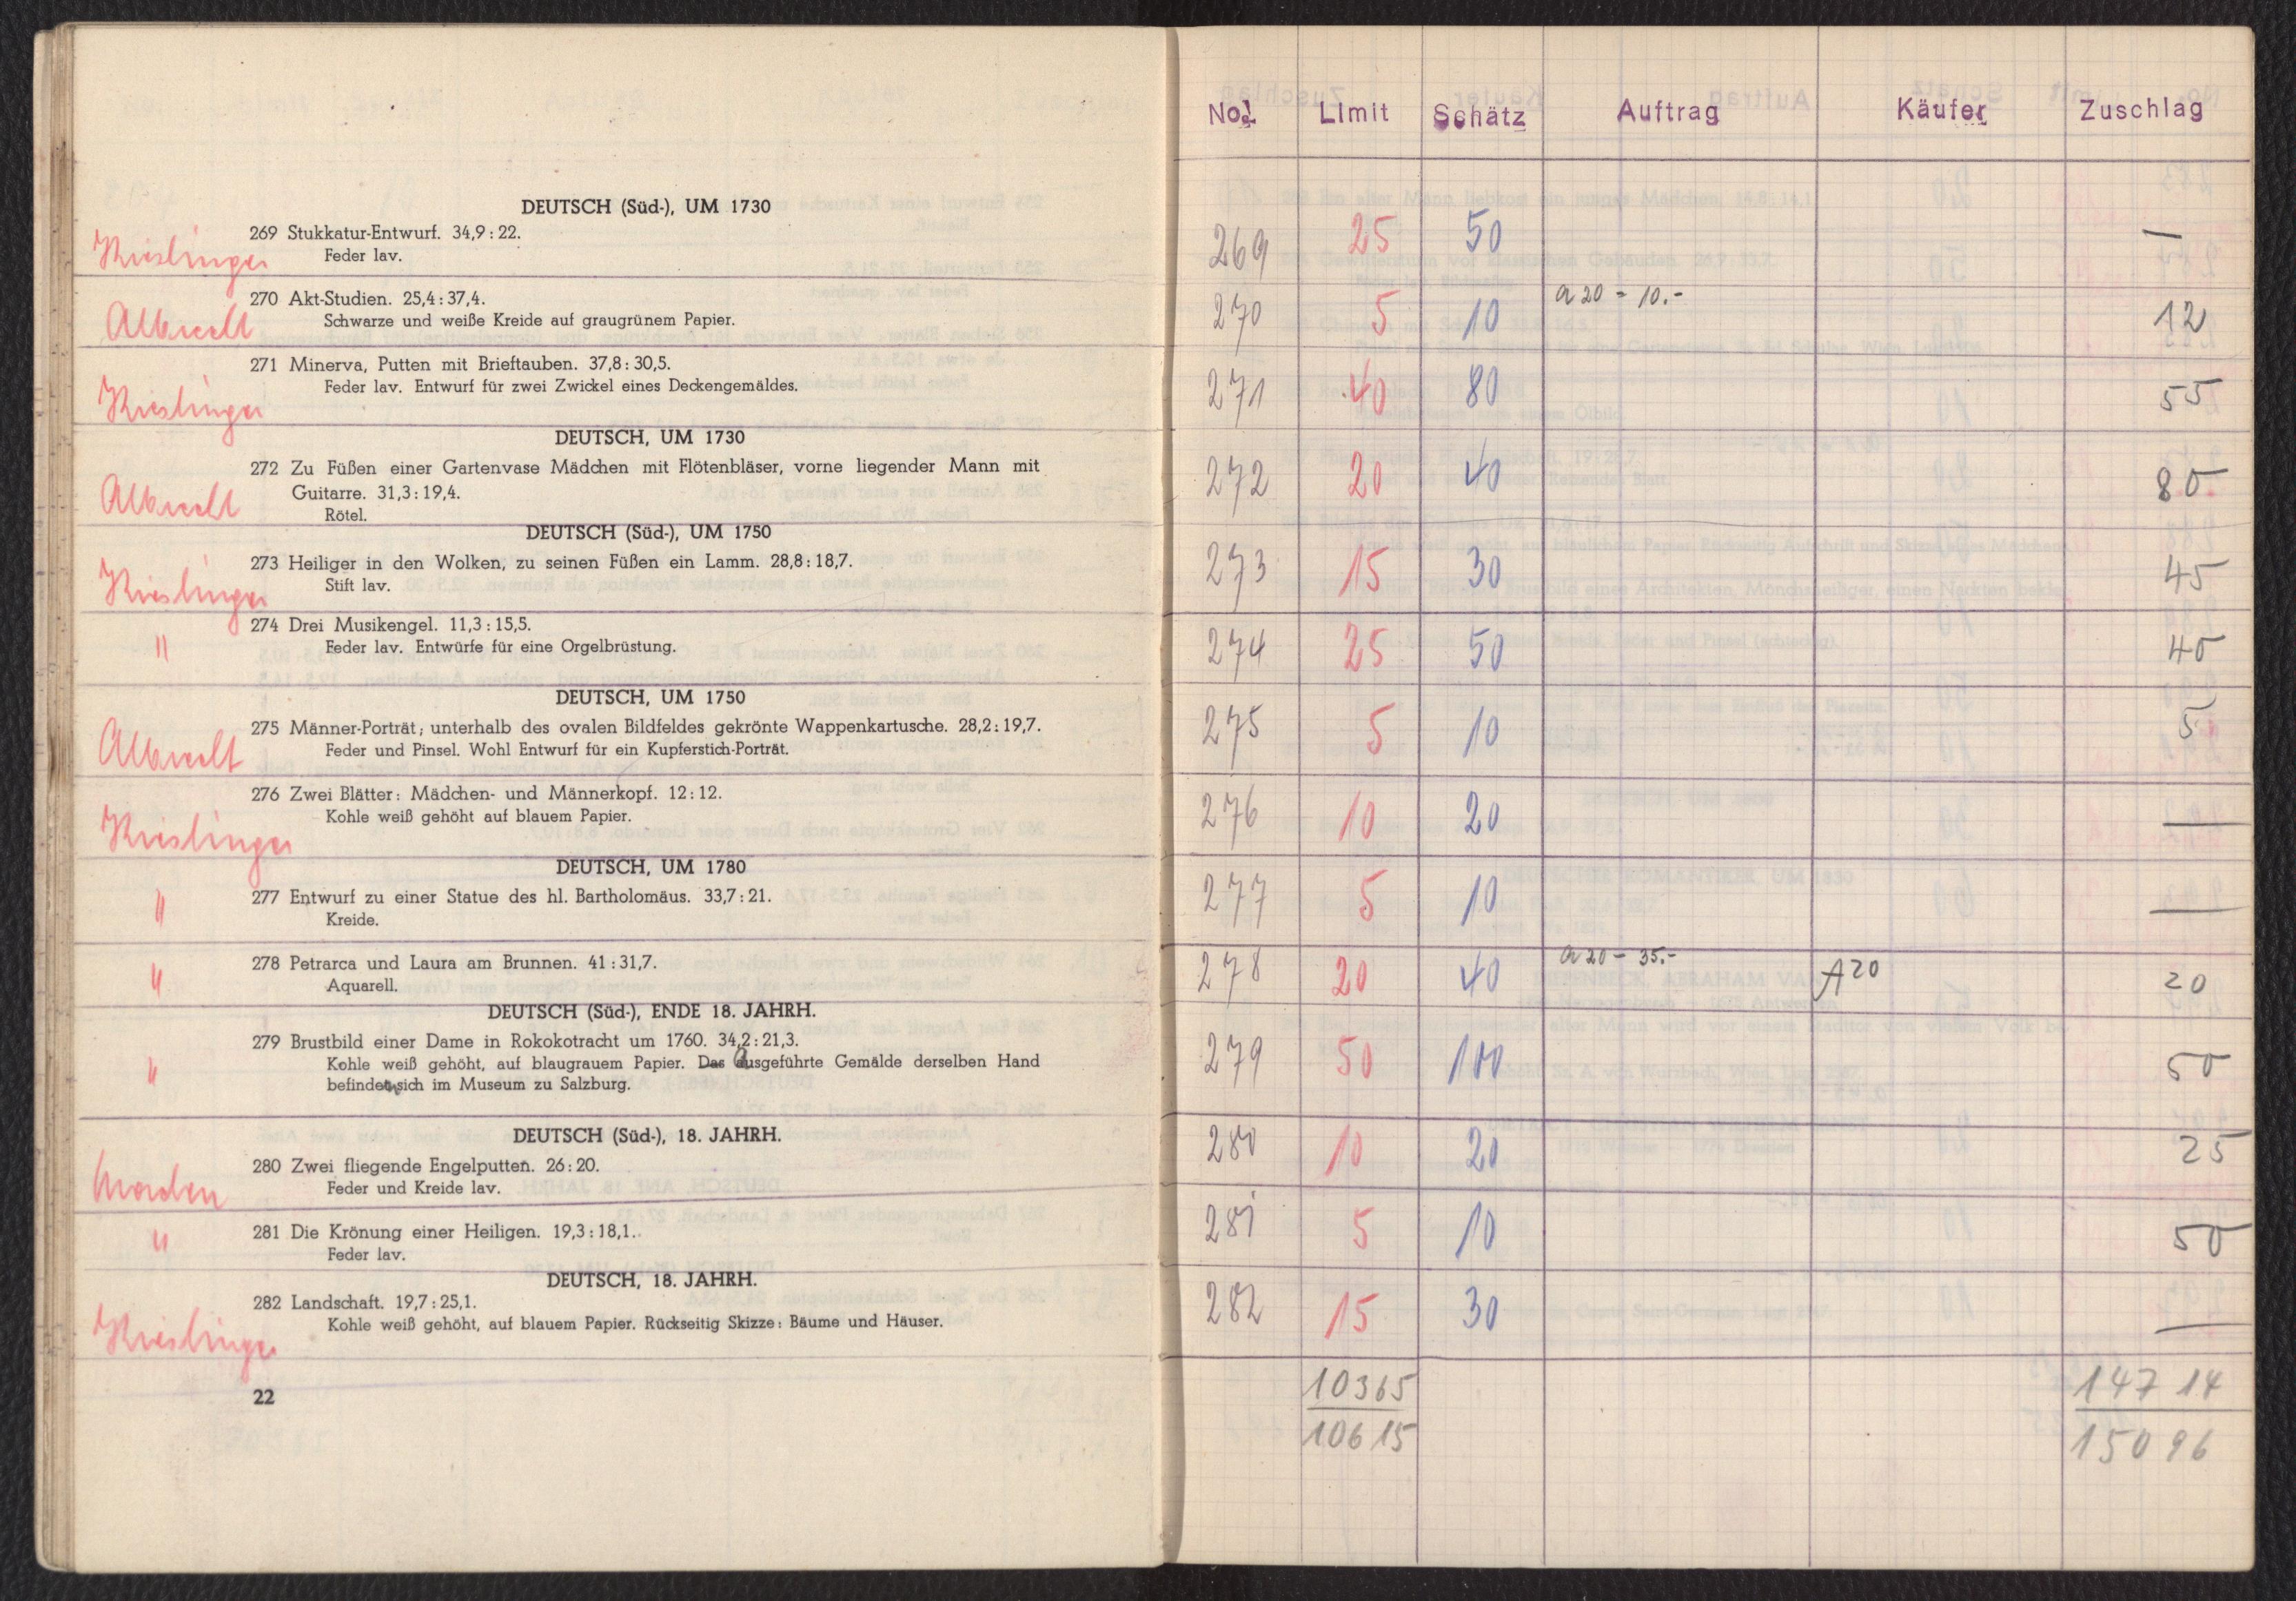 DEUTSCH (Süd-), UM 1730
269 Stukkatur-Entwurf. 34,9 : 22.
Feder lav.
Kieslinger
270 Akt-Studien. 25,4 : 37,4.
Schwarze und weiße Kreide auf graugrünem Papier.
Albrecht
271 Minerva, Putten mit Brieftauben. 37,8 : 30,5.
Feder lav. Entwurf für zwei Zwickel eines Deckengemäldes.
Kieslinger
DEUTSCH, UM 1730
272 Zu Füßen einer Gartenvase Mädchen mit Flötenbläser, vorne liegender Mann mit
Guitarre. 31,3 : 19,4.
Rötel.
Albrecht
DEUTSCH (Süd-), UM 1750
273 Heiliger in den Wolken, zu seinen Füßen ein Lamm. 28,8 : 18,7.
Stift lav.
Kieslinger
274 Drei Musikengel. 11,3 : 15,5.
Feder lav. Entwürfe für eine Orgelbrüstung.
"
DEUTSCH, UM 1750
275 Männer-Porträt; unterhalb des ovalen Bildfeldes gekrönte Wappenkartusche. 28,2 : 19,7.
Feder und Pinsel. Wohl Entwurf für ein Kupferstich-Porträt.
Albrecht
276 Zwei Blätter: Mädchen- und Männerkopf. 12 : 12.
Kohle weiß gehöht auf blauem Papier.
Kieslinger
DEUTSCH, UM 1780
277 Entwurf zu einer Statue des hl. Bartholomäus. 33,7 : 21.
Kreide.
"
278 Petrarca und Laura am Brunnen. 41 : 31,7.
Aquarell.
"
DEUTSCH (Süd-), ENDE 18. JAHRH.
279 Brustbild einer Dame in Rokokotracht um 1760. 34,2 : 21,3.
Kohle weiß gehöht, auf blaugrauem Papier. Das ausgeführte Gemälde derselben Hand
befindet sich im Museum zu Salzburg.
"
DEUTSCH (Süd-), 18. JAHRH.
280 Zwei fliegende Engelputten. 26 : 20.
Feder und Kreide lav.
281 Die Krönung einer Heiligen. 19,3 : 18,1.
Feder lav.
"
DEUTSCH, 18. JAHRH.
282 Landschaft. 19,7 : 25,1.
Kohle weiß gehöht, auf blauem Papier. Rückseitig Skizze: Bäume und Häuser.
Kieslinger
22
No. Limit Schätz Auftrag Käufer Zuschlag
269 25 50 —
270 5 10 a 20 - 10.- 12
271 40 80 55
272 20 40 80
273 15 30 45
274 25 50 40
275 5 10 5
276 10 20 —
277 5 10 —
278 20 40 a 20 - 35.- A20 20
279 50 100 50
280 10 20 25
281 5 10 50
282 15 30 —
10365 147 14
10615 150 96